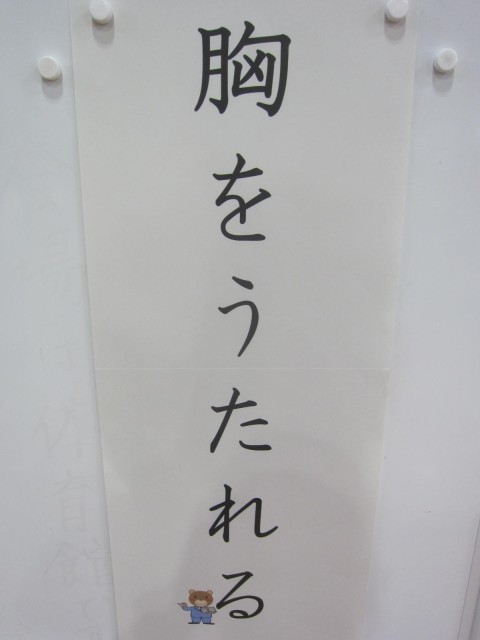 胸をうたれる